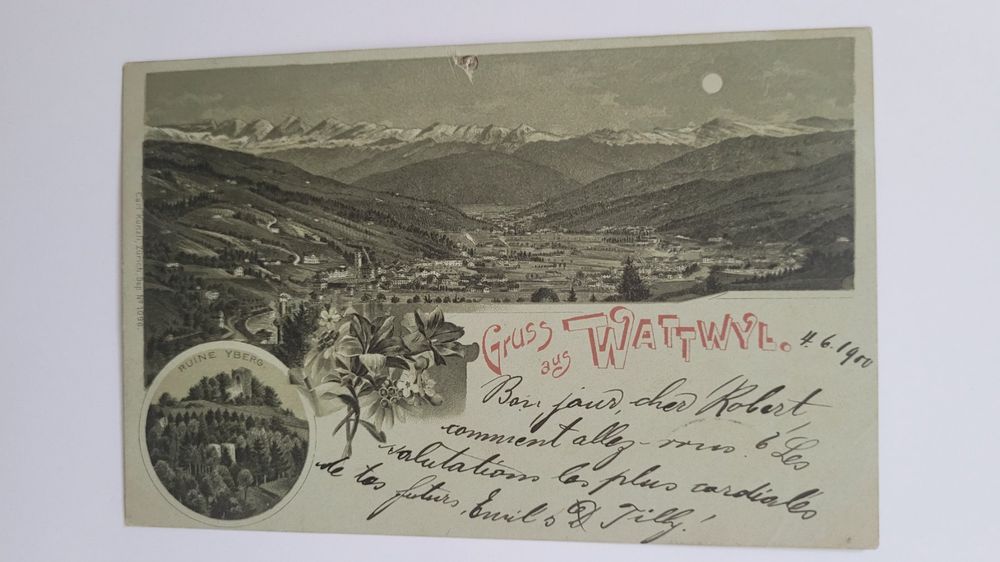 Carl Künzli, Zürich Dep. No 1096.
RUINE YBERG
Gruss
aus
WATTWYL.
4.6.1900
Bon jour, cher Robert,
comment allez-vous? Les
salutations les plus cordiales
de tes futurs, Emil & Tilly!